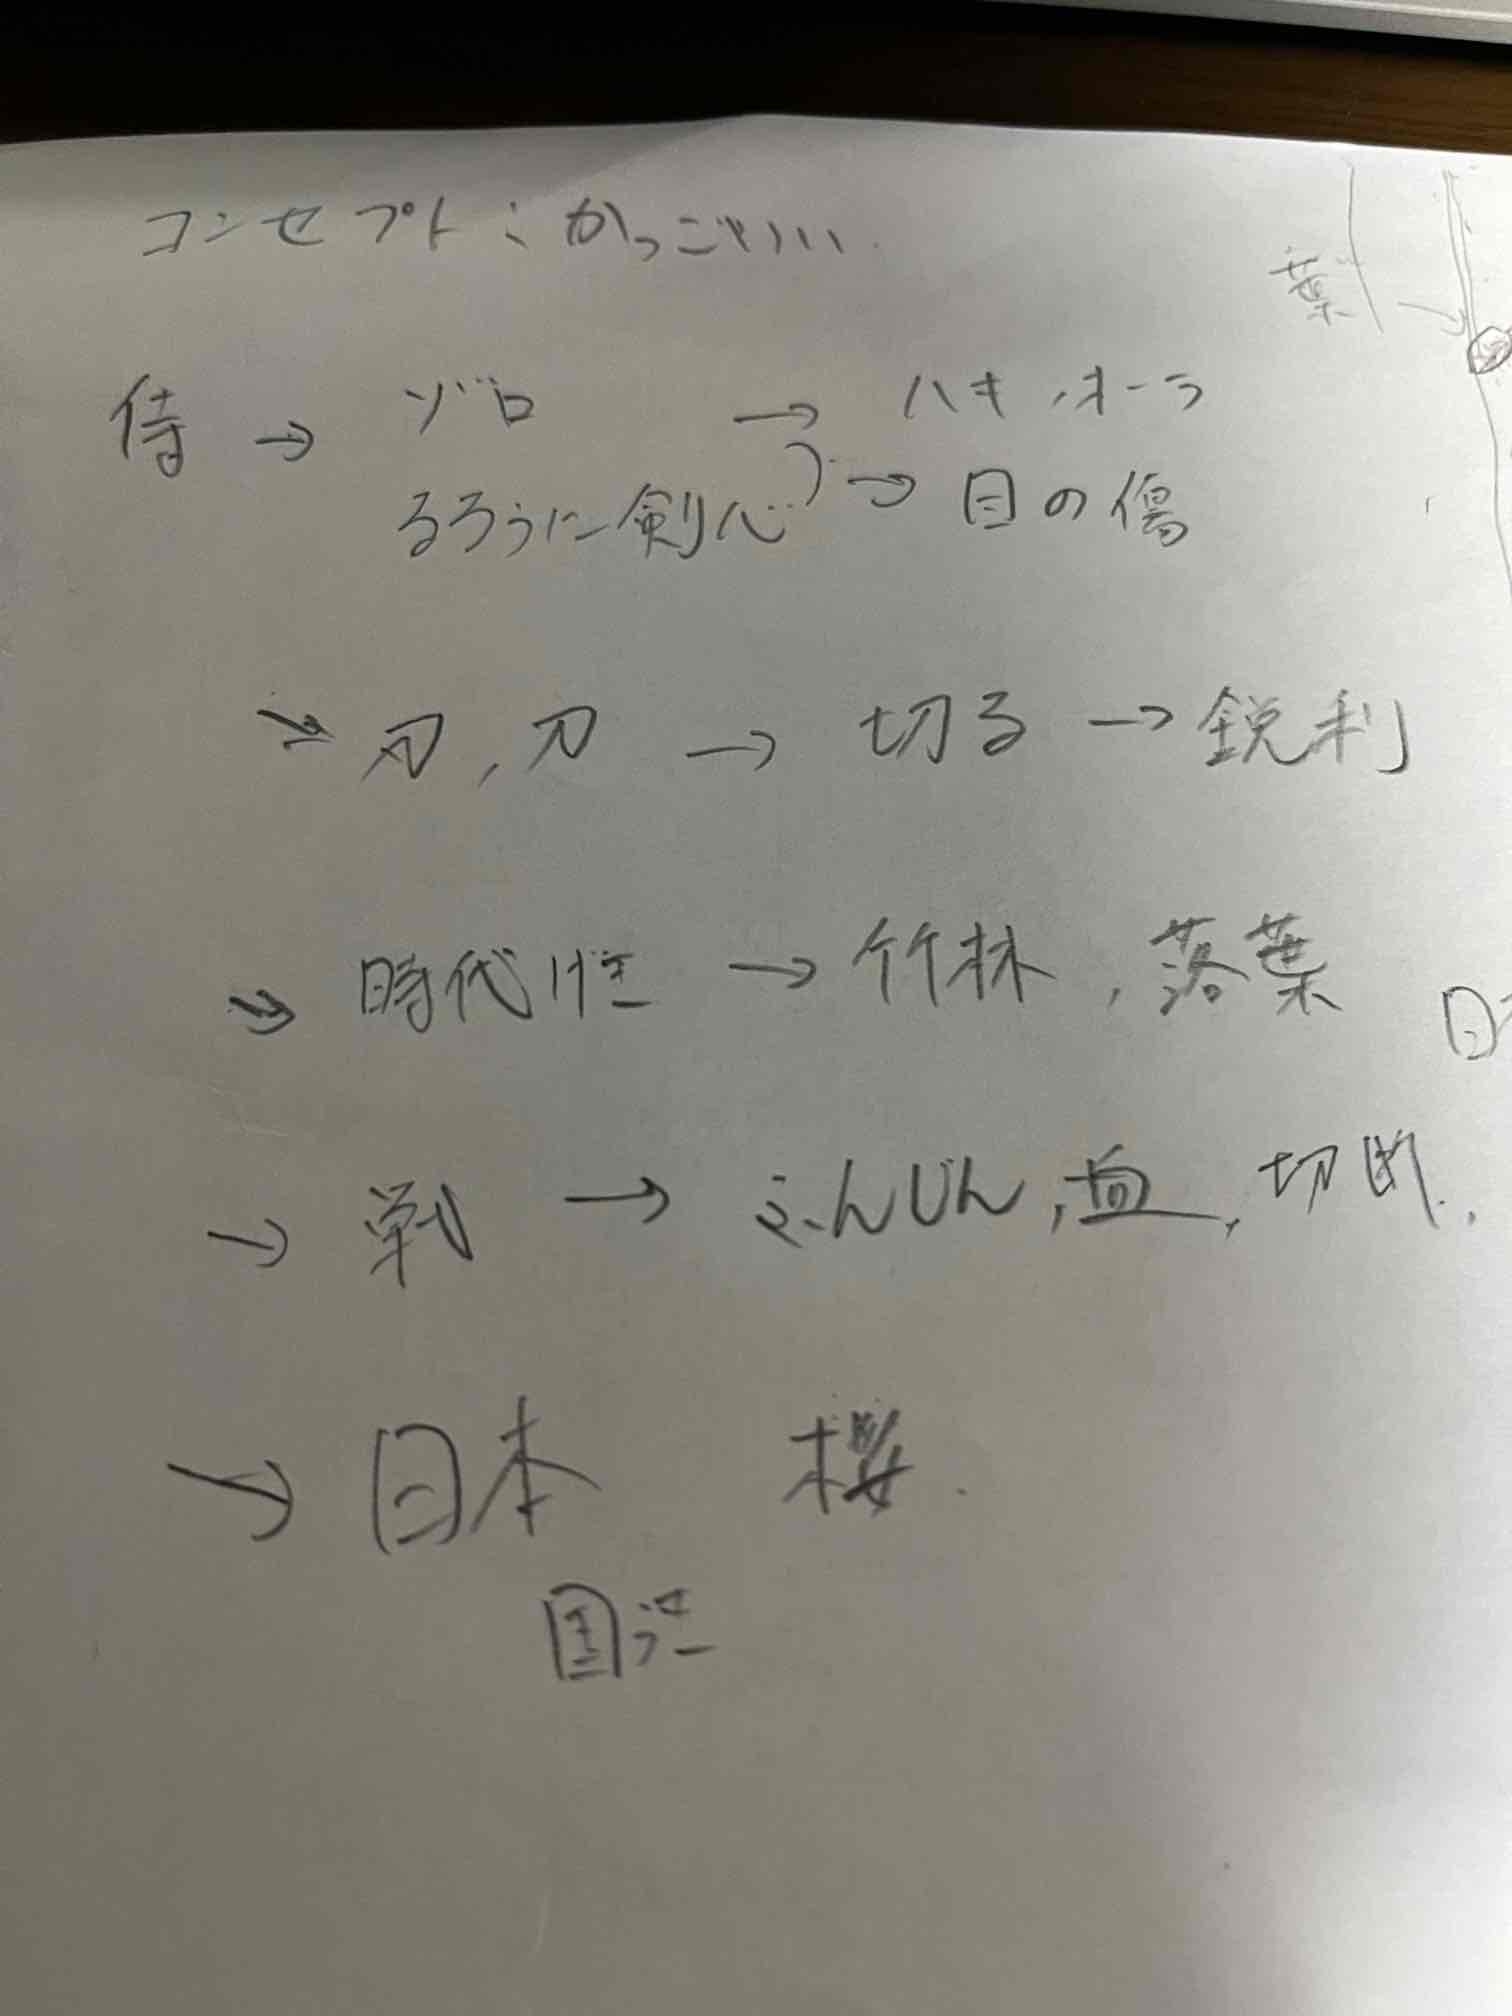 コンセプト：かっこいい
葉 →
侍 → ゾロ → ハキ、オーラ
るろうに剣心 → 目の傷
→ 刃、刀 → 切る → 鋭利
→ 時代性 → 竹林、落葉
→ 戦 → ふんじん、血、切断、
→ 日本 桜